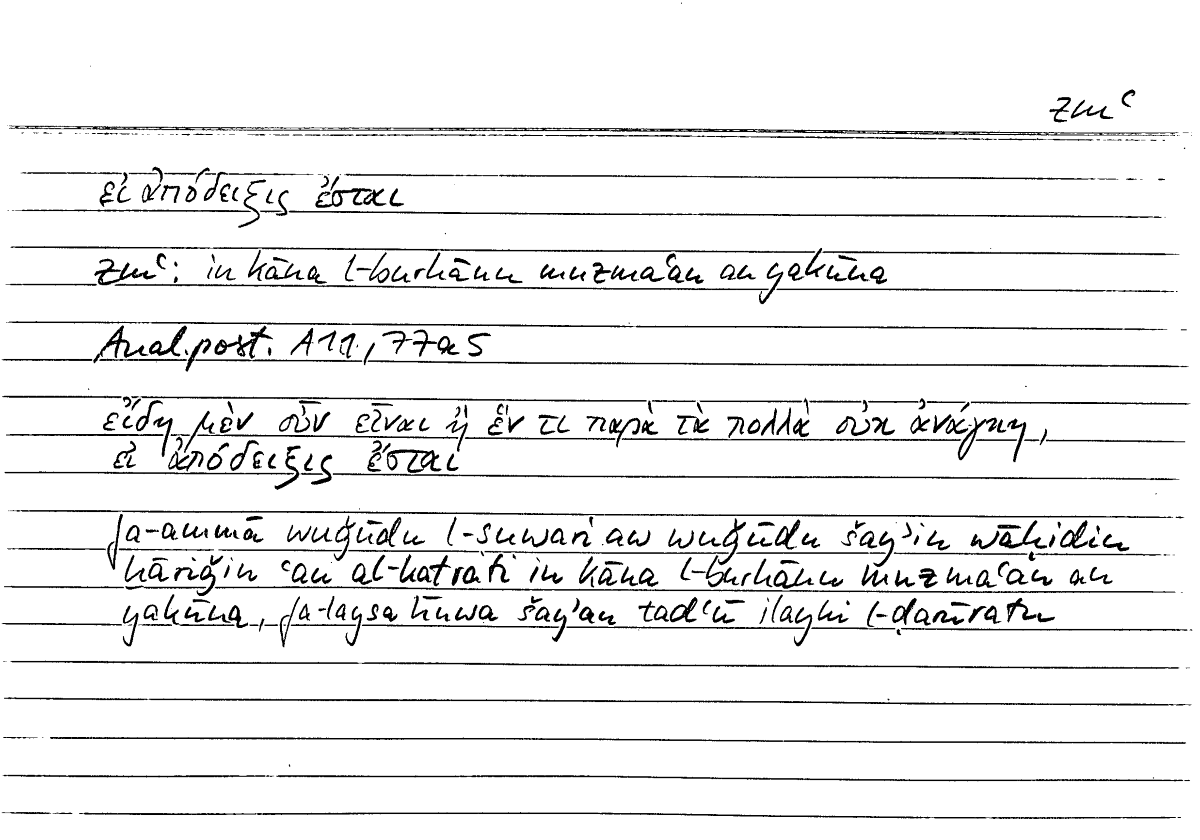 zmʿ
εἰ ἀπόδειξις ἔσται
zmʿ: in kāna l-burhānu muzmaʿan an yakūna
Anal.post. A11, 77a5
εἴδη μὲν οὖν εἶναι ἢ ἕν τι παρὰ τὰ πολλὰ οὐκ ἀνάγκη,
εἰ ἀπόδειξις ἔσται
fa-ammā wuǧūdu l-suwari aw wuǧūdu šayʾin wāḥidin
hāriǧin ʿan al-katrati in kāna l-burhānu muzmaʿan an
yakūna, fa-laysa hūwa šayʾan tadʿū ilayhi l-ḍarūratu